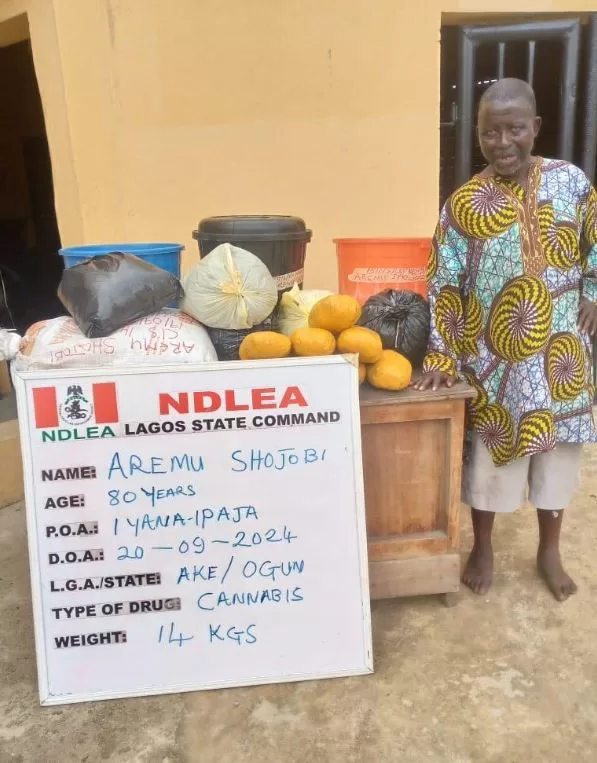 AREMU SHOJOBI
AREMU
SHOJOBI
NDLEA
NDLEA LAGOS STATE COMMAND
NAME: AREMU SHOJOBI
AGE: 80 YEARS
P.O.A.: IYANA-IPAJA
D.O.A.: 20-09-2024
L.G.A./STATE: AKE/OGUN
TYPE OF DRUG: CANNABIS
WEIGHT: 14 KGS